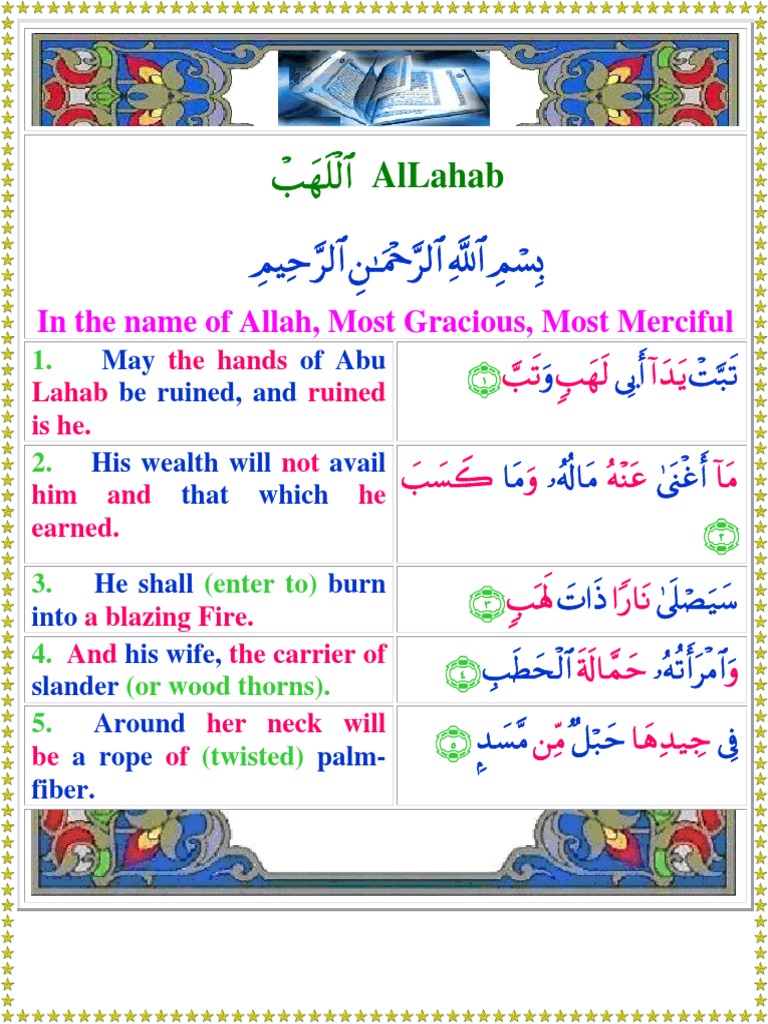 ٱللَّهَبْ AlLahab
بِسْمِ ٱللَّهِ ٱلرَّحْمَـٰنِ ٱلرَّحِيمِ
In the name of Allah, Most Gracious, Most Merciful
1. May the hands of Abu
Lahab be ruined, and ruined
is he.
تَبَّتْ يَدَآ أَبِى لَهَبٍۢ وَتَبَّ ١
2. His wealth will not avail
him and that which he
earned.
مَآ أَغْنَىٰ عَنْهُ مَالُهُۥ وَمَا كَسَبَ
٢
3. He shall (enter to) burn
into a blazing Fire.
سَيَصْلَىٰ نَارًۭا ذَاتَ لَهَبٍۢ ٣
4. And his wife, the carrier of
slander (or wood thorns).
وَٱمْرَأَتُهُۥ حَمَّالَةَ ٱلْحَطَبِ ٤
5. Around her neck will
be a rope of (twisted) palm-
fiber.
فِى جِيدِهَا حَبْلٌۭ مِّن مَّسَدٍۭ ٥